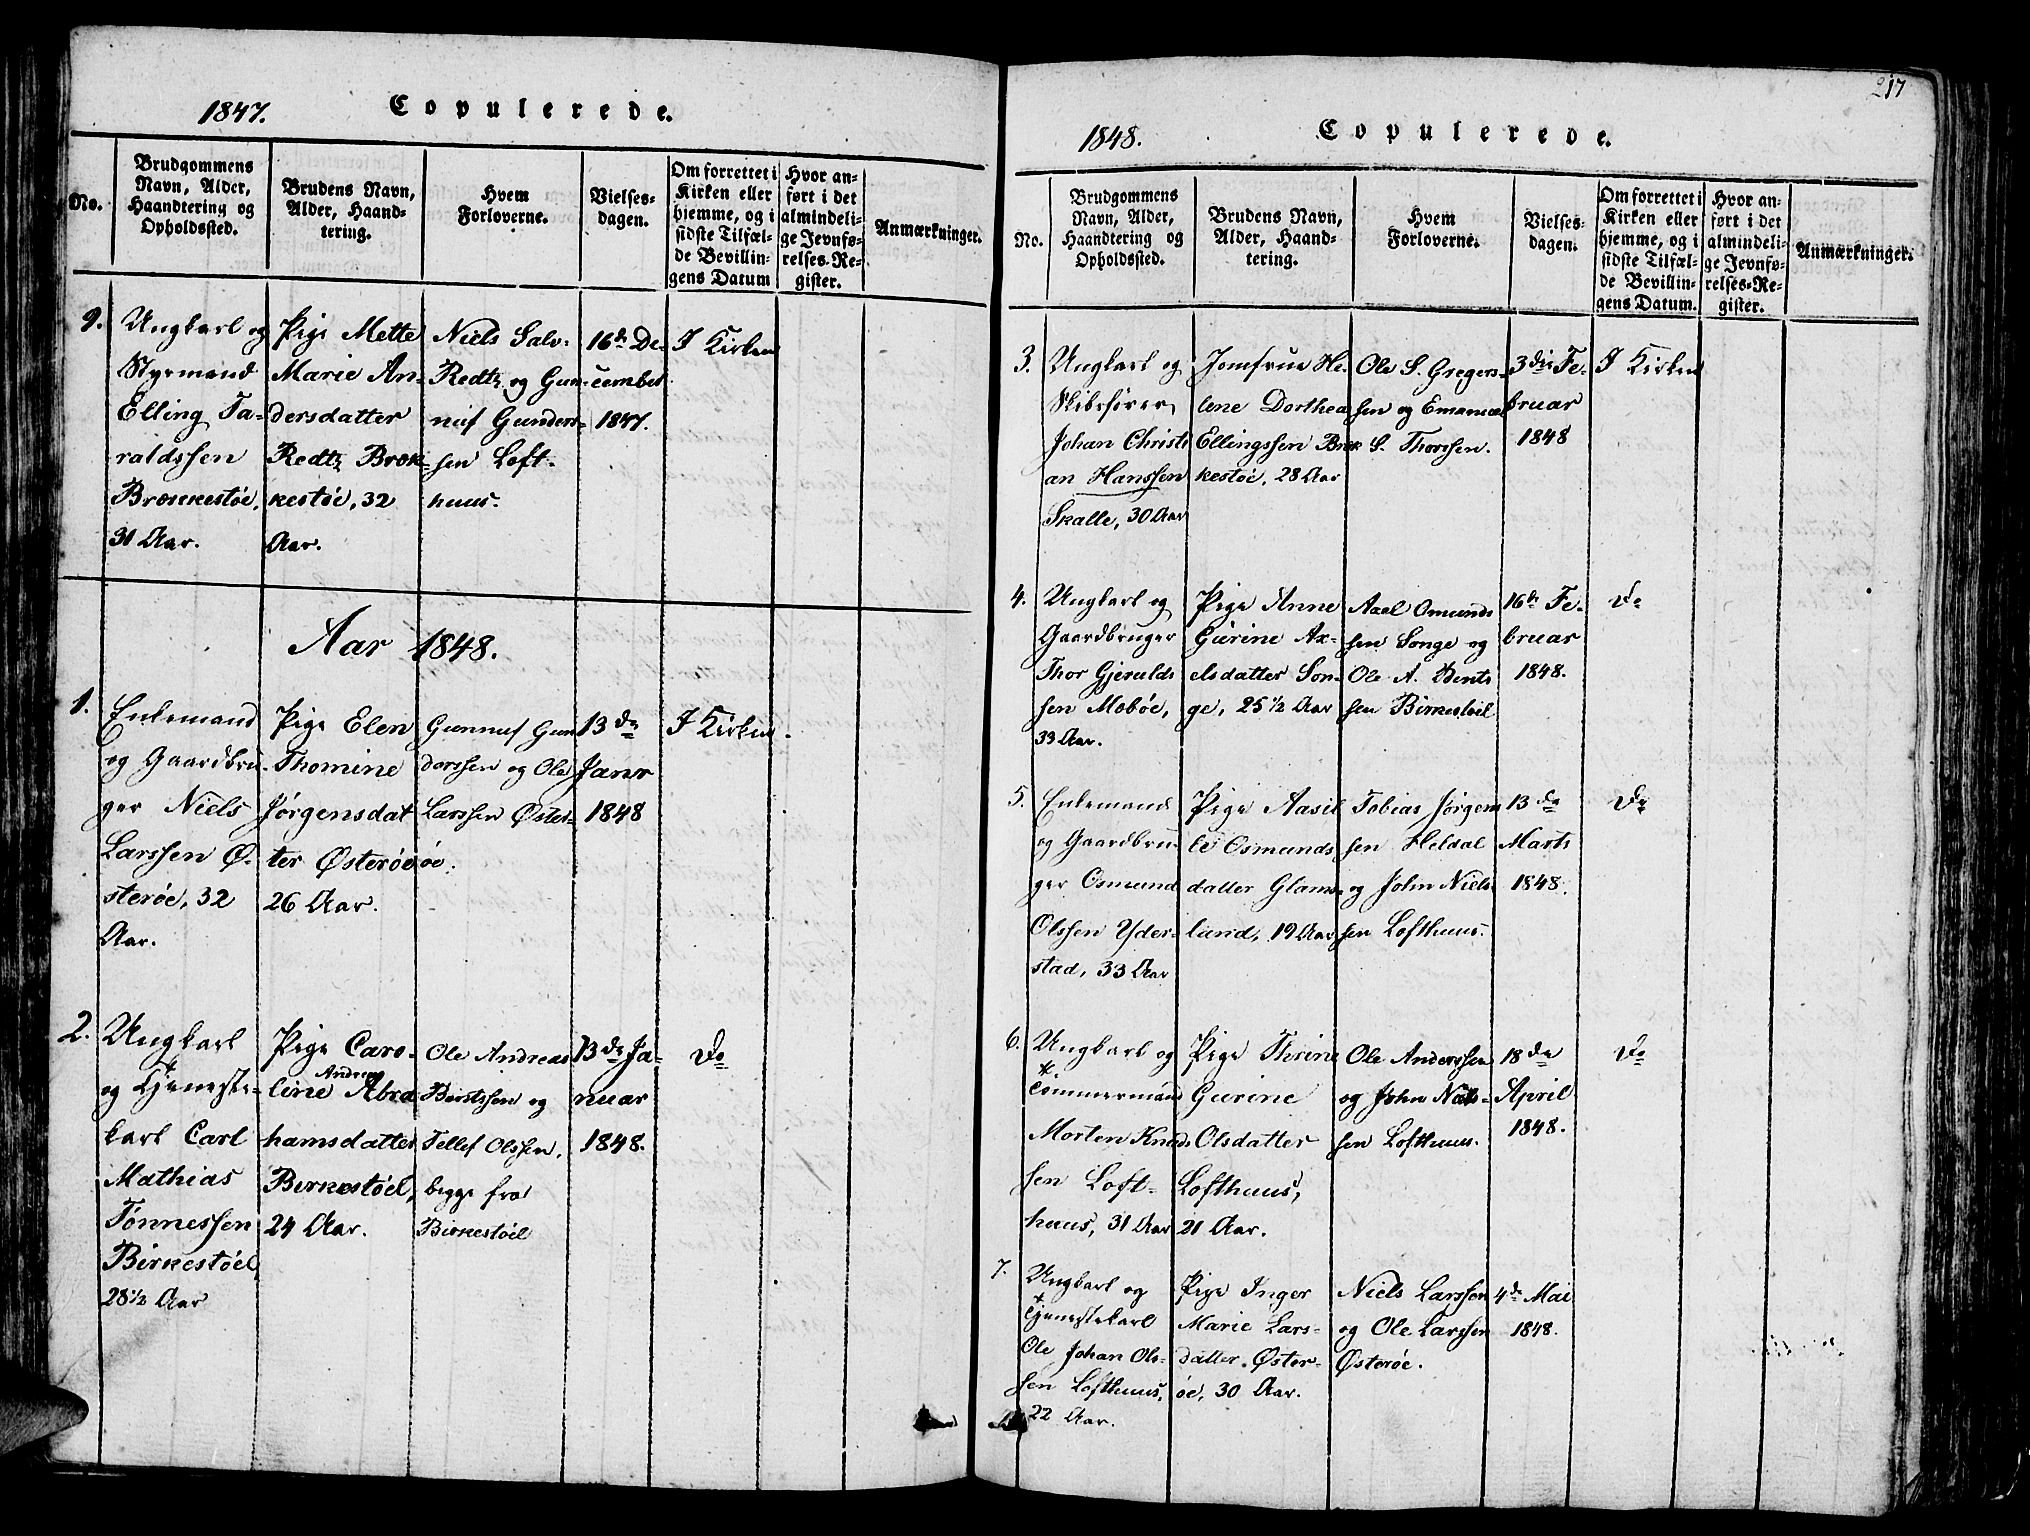 1847. Copulerede.
No.
Brudgommens
Navn, Alder,
Haandtering og
Opholdssted.
Brudens Navn,
Alder, Haand-
tering.
Hvem
Forloverne.
Vielses-
dagen.
Om forrettet i
Kirken eller
hjemme, og i
sidste Tilfæl-
de Bevillin-
gens Datum
Hvor an-
ført i det
almindeli-
ge Jevnfø-
relses-Re-
gister.
Anmærkninger.
9.
Ungkarl og
Styrmand
Elling Ta-
raldssen
Brækkestøe,
31 Aar.
Pige Mette
Marie An-
dersdatter
Redtz Bræk-
kestøe, 32
Aar.
Niels Salv.
Redtz og Gun-
nuf Gunders-
sen Loft-
huus.
16de De-
cember
1847.
I Kirken
Aar 1848.
1.
Enkemand
og Gaardbru-
ger Niels
Larssen Ø-
sterøe, 32
Aar.
Pige Elen
Thomine
Jørgensdat
ter Østerøe
26 Aar.
Gunnuf Gun
derssen og Ole
Larssen Øster-
øe.
13de
Janr
1848
I Kirken.
2.
Ungkarl
og Tjeneste-
karl Carl
Mathias
Tønnessen
Birkestøel,
28 1/2 Aar
Pige Caro-
Andrea
line Abra
hamsdatter
Birkestøel,
24 Aar.
Ole Andreas
Berntssen og
Tellef Olssen,
begge fra
Birkestøel
13de Ja-
nuar
1848.
Do
217
1848. Copulerede.
No.
Brudgommens
Navn, Alder,
Haandtering og
Opholdssted.
Brudens Navn,
Alder, Haand-
tering.
Hvem
Forloverne.
Vielses-
dagen.
Om forrettet i
Kirken eller
hjemme, og i
sidste Tilfæl-
de Bevillin-
gens Datum.
Hvor an-
ført i det
almindeli-
ge Jevnfø-
relses-Re-
gister.
Anmærkninger.
3.
Ungkarl og
Skibsfører
Johan Christi
an Hanssen
Skalle, 30 Aar
Jomfrue He-
lene Dorthea
Ellingssen Bræk
kestøe, 28 Aar
Ole S. Gregers-
sen og Emanuel
S. Thorssen.
3die Fe-
bruar
1848
I Kirken
4.
Ungkarl og
Gaardbruger
Thor Gjerulds
sen Mobøe,
33 Aar.
Pige Anne
Gurine Ax-
elsdatter Son-
ge, 25 1/2 Aar
Axel Omunds
sen Songe og
Ole A. Bents
sen Birkestøel
16de Fe-
bruar
1848.
Do
5.
Enkemand
og Gaardbru-
ger Osmund
Olssen Yder-
stad, 33 Aar
Pige Aasil
le Osmunds
datter Glams-
land, 19 Aar
Tobias Jørgens
sen Heldal
og John Niels-
sen Lofthuus.
13de
Marts
1848.
Do
6.
Ungkarl og
Tømmermand
Morten Knuds
sen Loft-
huus, 31 Aar
Pige Therine
Gurine
Olsdatter
Lofthuus,
21 Aar.
Ole Anderssen
og John Niels-
sen Lofthuus.
18de
April
1848.
Do
7.
Ungkarl og
Tjenestekarl
Ole Johan Ols-
sen Lofthuus,
22 Aar.
Pige Inger
Marie Lars-
datter Øster-
øe, 30 Aar.
Niels Larssen
og Ole Larssen
Østerøe.
4de Mai
1848.